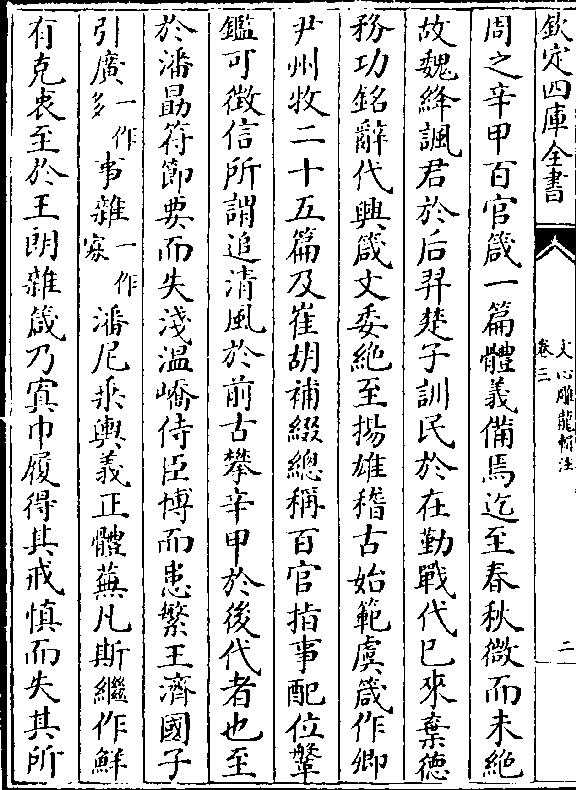 欽定四庫全書
文心雕龍輯注
卷三
二
周之辛甲百官箴一篇體義備焉迄至春秋微而未絶
故魏絳諷君於后羿楚子訓民於在勤戰代已來棄德
務功銘辭代興箴文委絶至揚雄稽古始範虞箴作卿
尹州牧二十五篇及崔胡補綴總稱百官指事配位鞶
鑑可徵信所謂追清風於前古攀辛甲於後代者也至
於潘朂符節要而失淺温嶠侍臣博而患繁王濟國子
引廣一作多事雜一作寡潘尼乘輿義正體蕪凡斯繼作鮮
有克衷至於王朗雜箴乃寘巾履得其戒慎而失其所